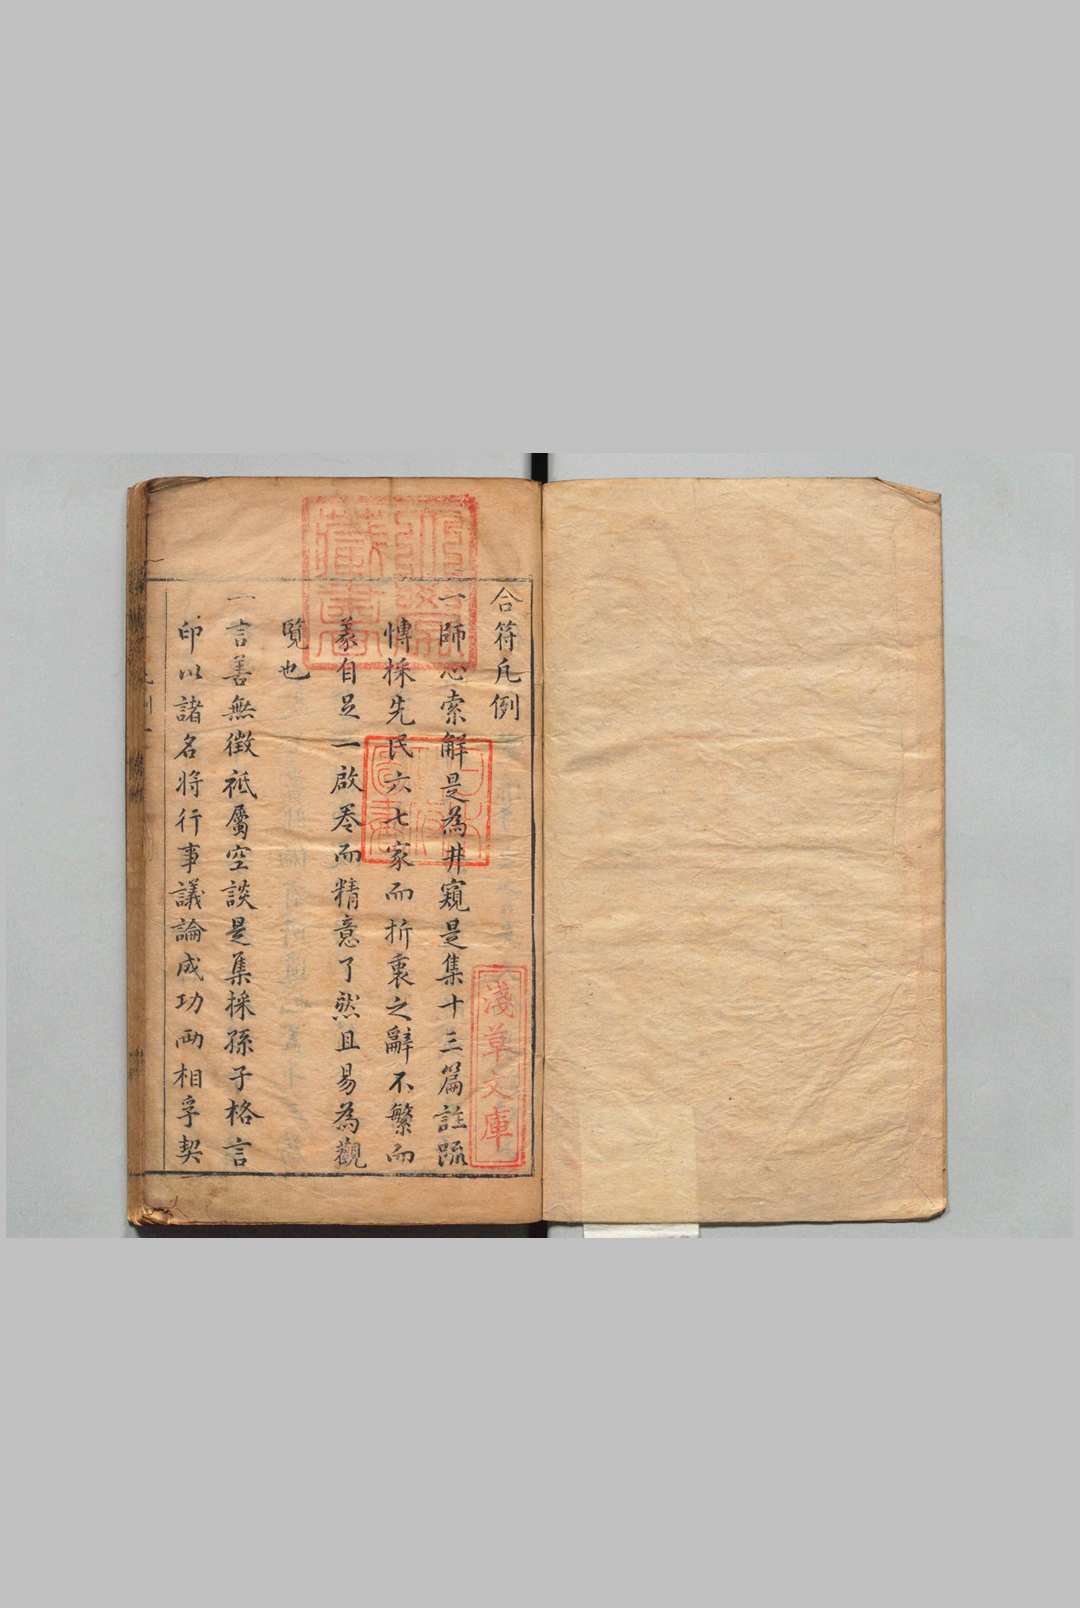 合符凡例
一師心索解是為井窺是集十三篇註疏
慱採先民六七家而折衷之辭不繁而
義自足一啟卷而精意了然且易為觀
覽也
一言善無徵祇屬空談是集採孫子格言
印以諸名將行事議論成功兩相孚契
淺草文庫